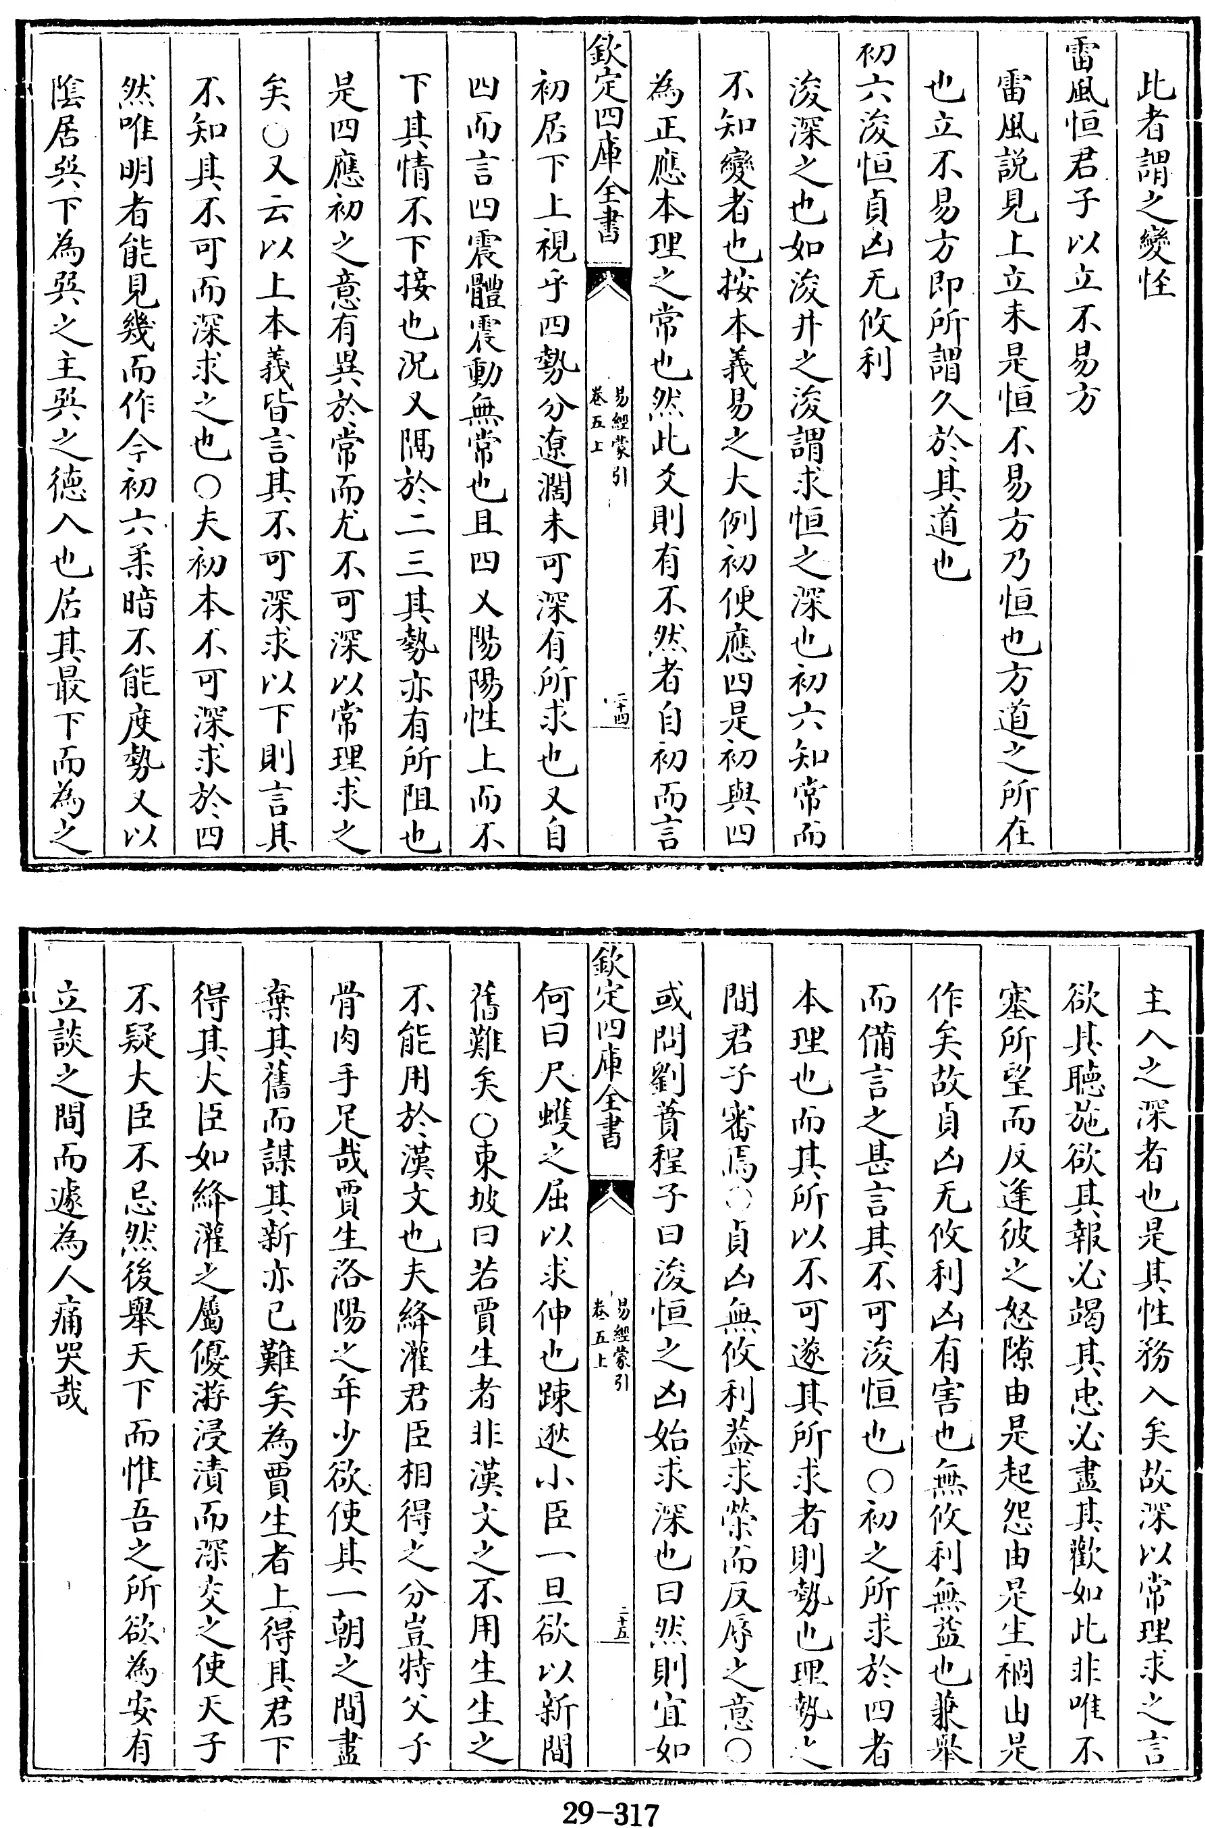 此者謂之變恠
雷風恒君子以立不易方
雷風説見上立未是恒不易方乃恒也方道之所在
也立不易方即所謂久於其道也
初六浚恒貞凶无攸利
浚深之也如浚井之浚謂求恒之深也初六知常而
不知變者也按本義易之大例初便應四是初與四
為正應本理之常也然此爻則有不然者自初而言
欽定四庫全書
易經蒙引
卷五上
二十四
初居下上視乎四勢分遼濶未可深有所求也又自
四而言四震體震動無常也且四又陽陽性上而不
下其情不下接也況又隔於二三其勢亦有所阻也
是四應初之意有異於常而尤不可深以常理求之
矣○又云以上本義皆言其不可深求以下則言其
不知其不可而深求之也○夫初本不可深求於四
然唯明者能見幾而作今初六柔暗不能度勢又以
陰居巽下為巽之主巽之德入也居其最下而為之
主入之深者也是其性務入矣故深以常理求之言
欲其聽施欲其報必竭其忠必盡其歡如此非唯不
塞所望而反逢彼之怒隙由是起怨由是生禍由是
作矣故貞凶无攸利凶有害也無攸利無益也兼舉
而備言之甚言其不可浚恒也○初之所求於四者
本理也而其所以不可遂其所求者則勢也理勢之
間君子審焉○貞凶無攸利葢求榮而反辱之意○
或問劉蕡程子曰浚恒之凶始求深也曰然則宜如
欽定四庫全書
易經蒙引
卷五上
二十五
何曰尺蠖之屈以求伸也踈逖小臣一旦欲以新間
舊難矣○東坡曰若賈生者非漢文之不用生生之
不能用於漢文也夫絳灌君臣相得之分豈特父子
骨肉手足哉賈生洛陽之年少欲使其一朝之間盡
棄其舊而謀其新亦已難矣為賈生者上得其君下
得其大臣如絳灌之屬優游浸漬而深交之使天子
不疑大臣不忌然後舉天下而惟吾之所欲為安有
立談之間而遽為人痛哭哉
29-317